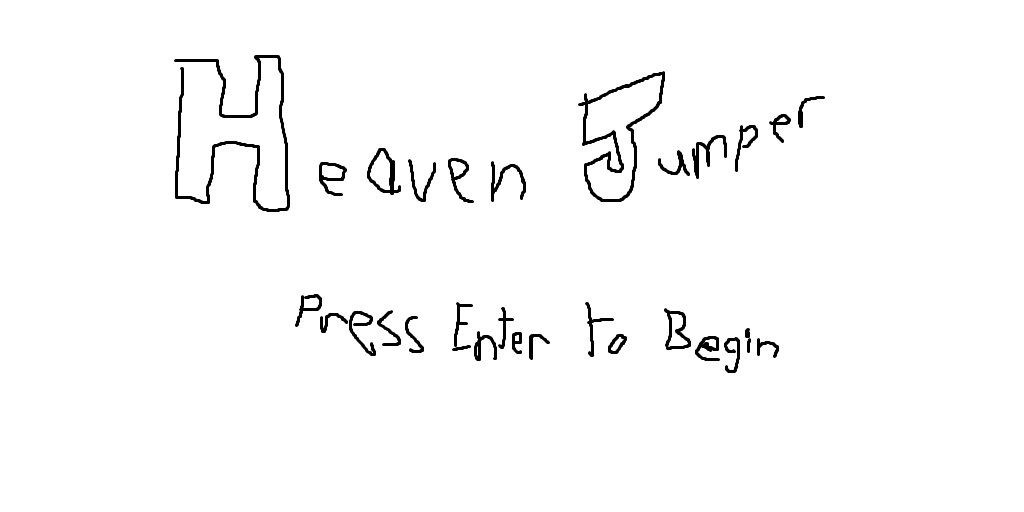 Heaven Jumper
Press Enter to Begin